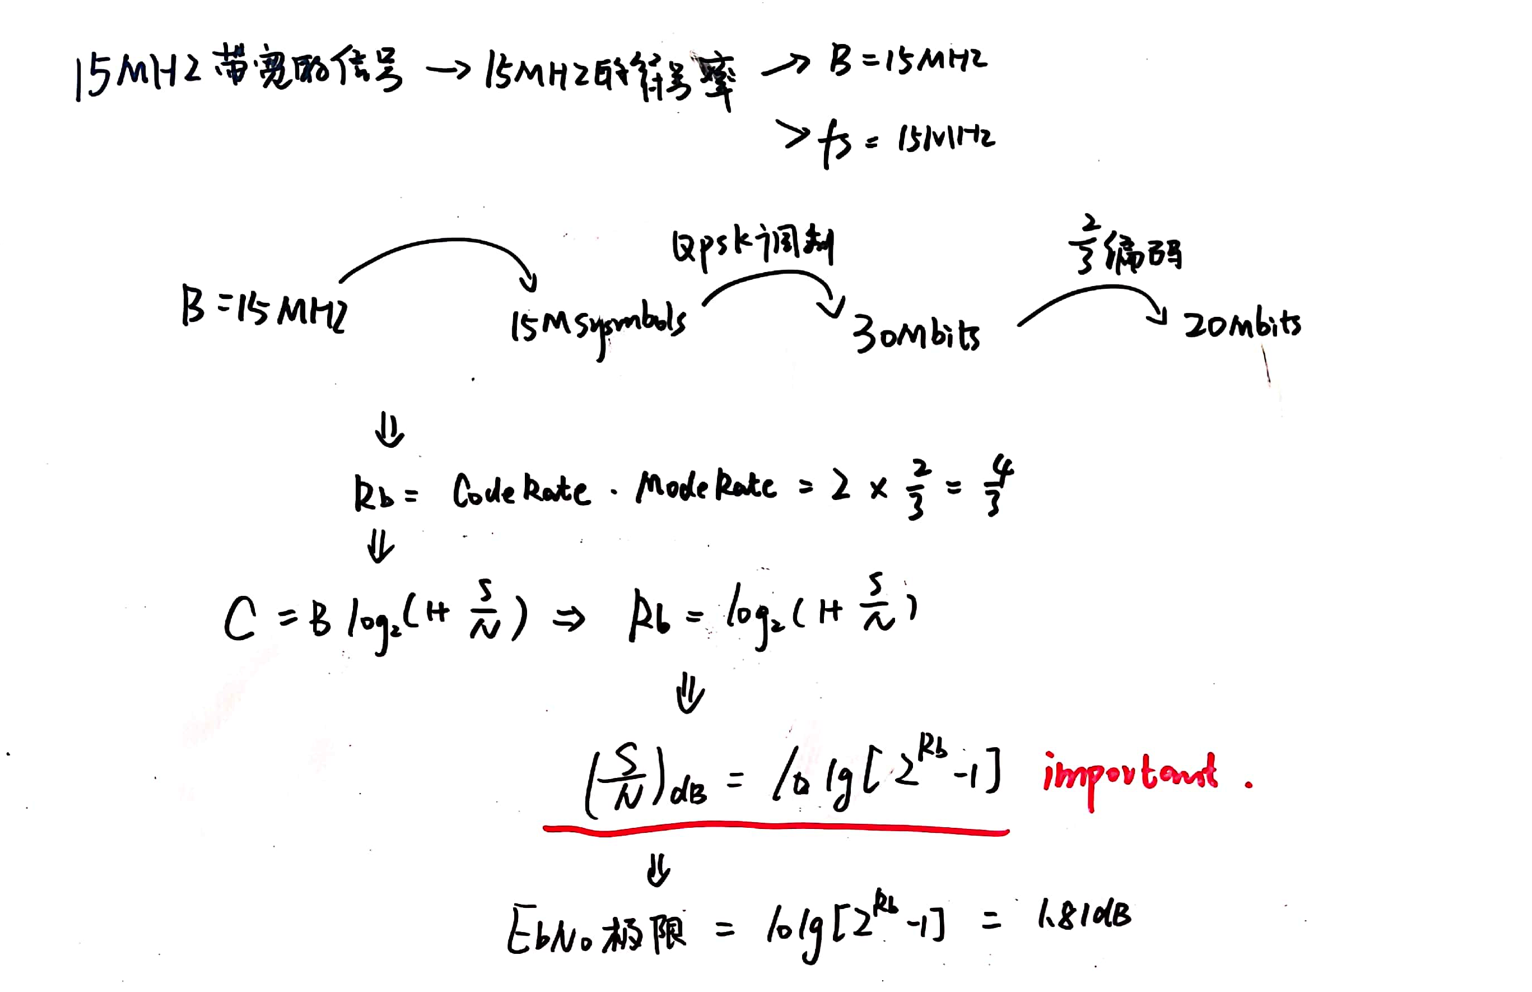 15MHz带宽的信号 → 15MHz的符号率 → B=15MHz
> fs = 15MHz
QPSK调制
2/3编码
B=15MHz
15Msysmbols
30Mbits
20Mbits
⇓
Rb = CodeRate · ModeRate = 2 × 2/3 = 4/3
⇓
C = B log₂(1+ S/N) ⇒ Rb = log₂(1+ S/N)
⇓
(S/N)dB = 10 lg[2^Rb -1] important.
⇓
EbN₀极限 = 10lg[2^Rb -1] = 1.81dB